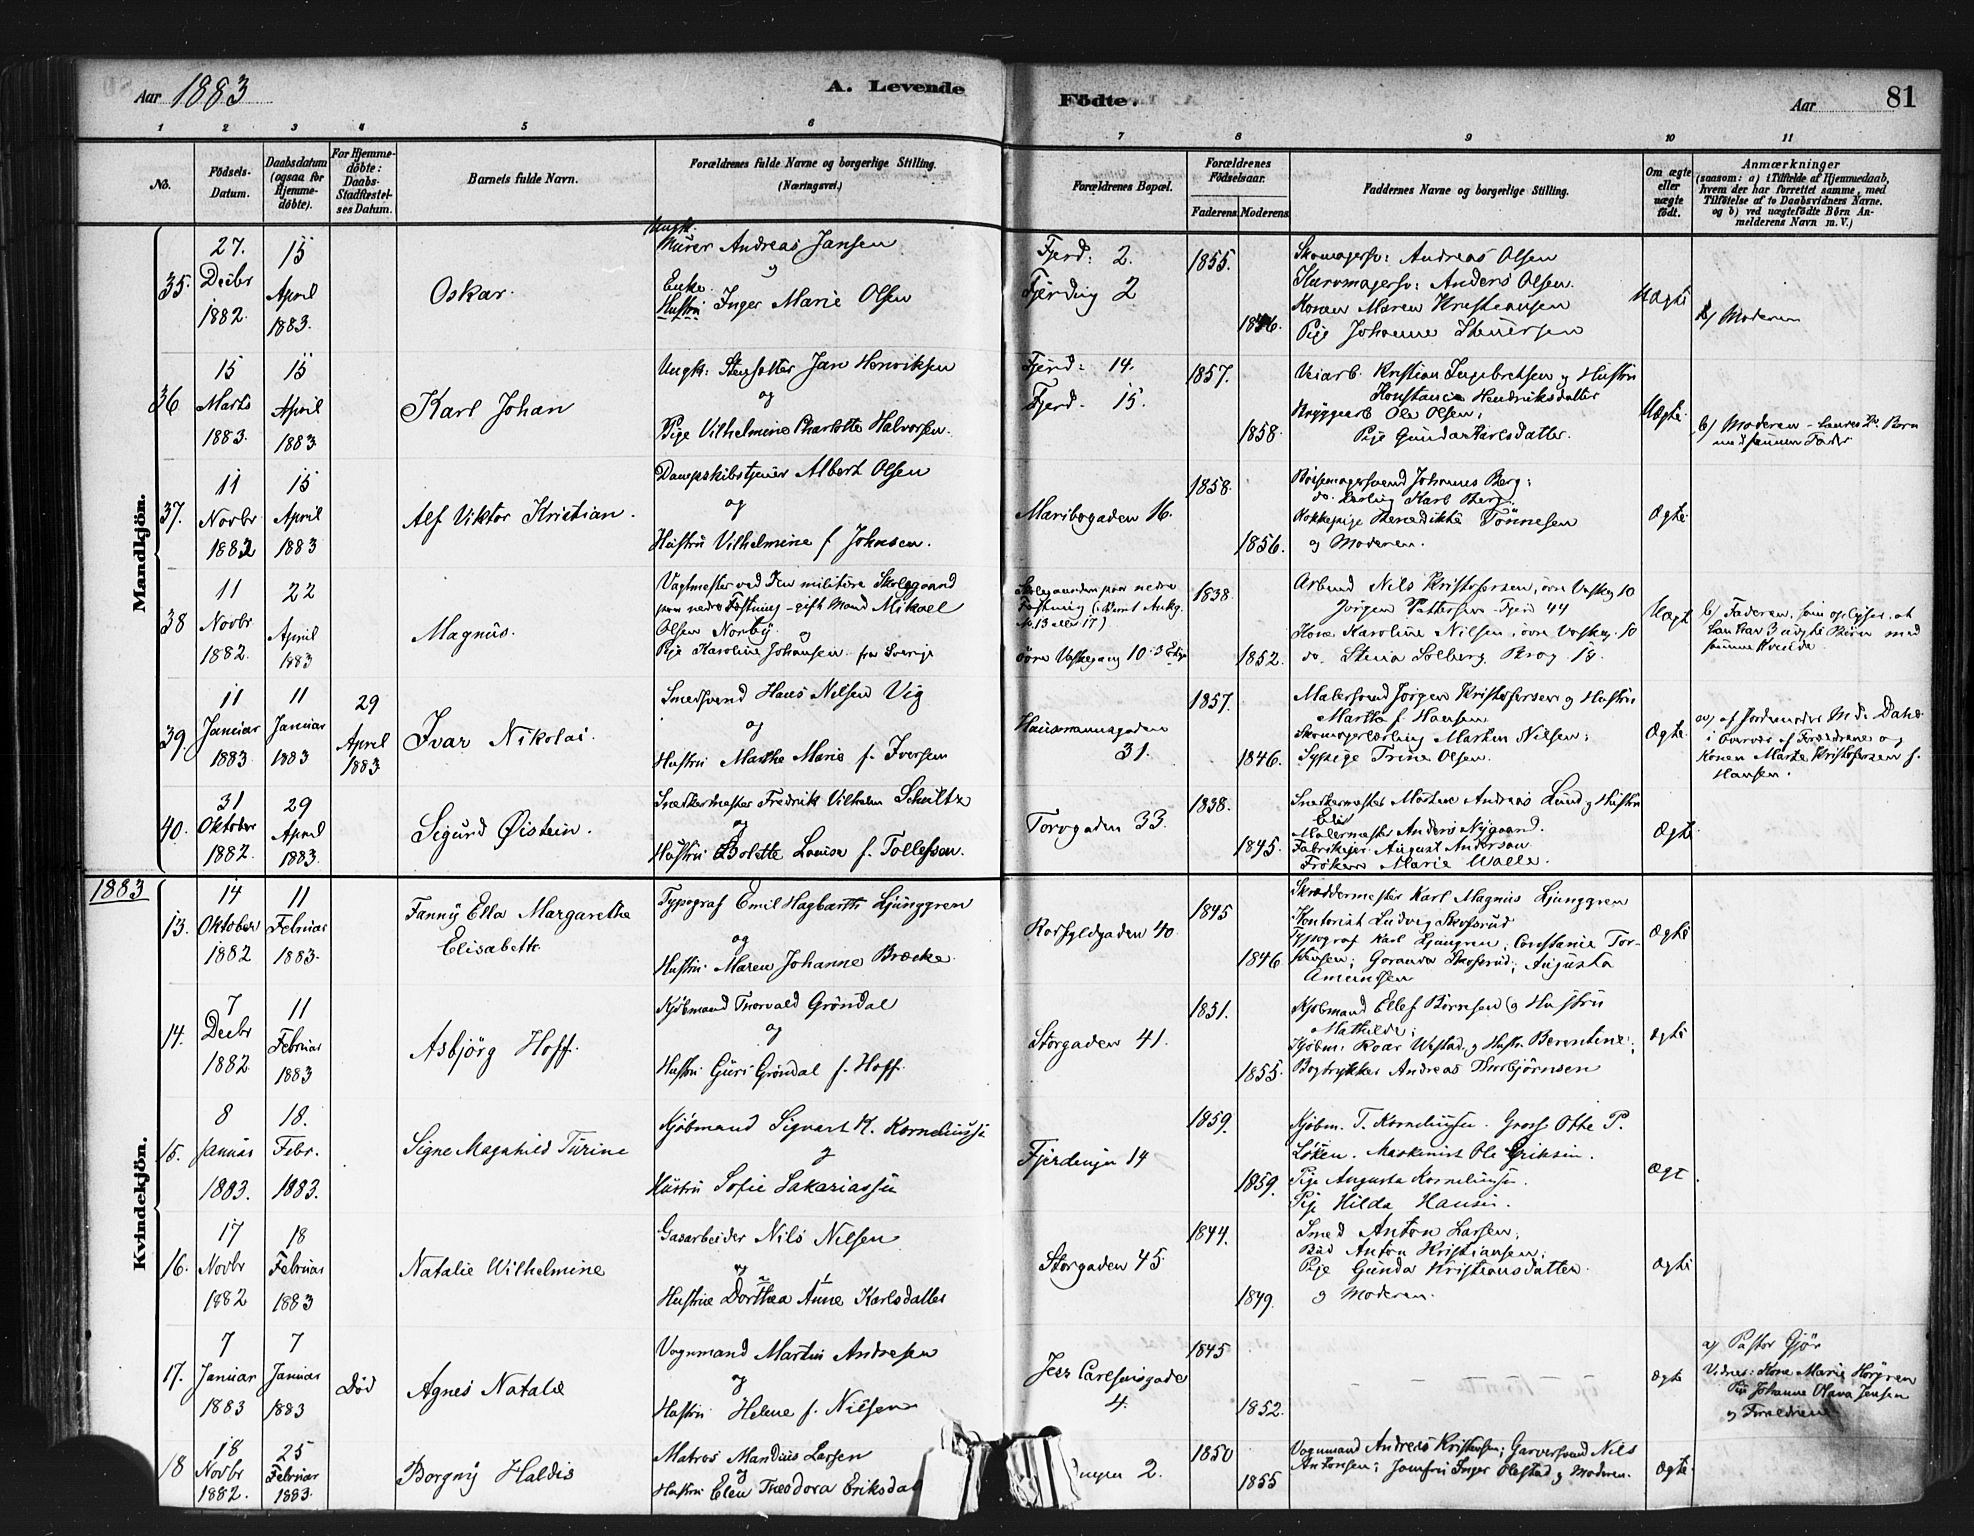 Aar 1883
A. Levende
Födte.
Aar
81
1 2 3 4 5 6 7 8 9 10 11
No.
Födsels-
Datum.
Daabsdatum
(ogsaa for
Hjemme-
döbte).
For Hjemme-
döbte:
Daabs-
Stadfæstel-
ses Datum.
Barnets fulde Navn.
Forældrenes fulde Navne og borgerlige Stilling.
(Næringsvei.)
Forældrenes Bopæl.
Forældrenes
Födselsaar.
Faderens. Moderens.
Faddernes Navne og borgerlige Stilling.
Om ægte
eller
uægte
födt.
Anmærkninger
(saasom: a) i Tilfælde af Hjemmedaab,
hvem der har forrettet samme, med
Tilföielse af to Daabsvidners Navne.
og b) ved uægtefödte Börn An-
melderens Navn m. V.)
Mandkjön.
35.
27.
Decbr
1882.
15
April
1883.
Oskar.
Ungk.
Murer Andreas Jansen
og
Enke
Hustru Inger Marie Olsen
Fjerd: 2.
Fjerding 2
1855.
Skomagersv: Andreas Olsen
Kurvmagersv: Anders Olsen
Konen Maren Kristiansen
Pige Johanne Stenersen
Uægte
b) Moderen
36
15
Marts
1883.
15
April
1883
Karl Johan
Ungk: Jan Henriksen
og
Pige Vilhelmine Charlotte Halvorsen.
Fjerd: 14.
Fjerd. 15.
1857.
1858.
Veiarb. Kristian Ingebretsen og Hustru
Konstance Hendriksdatter
Bryggearb Ole Olsen;
Pige Gunda Karlsdatter.
Uægte.
b) Moderen - hendes 2. Barn
med samme Fader
37.
11
Novbr
1882
15
April
1883
Alf Viktor Kristian.
Dampskibstjener Albert Olsen
og
Hustru Vilhelmine f. Johnsen.
Maribogaden 16.
1858.
1856.
Bössemagersvend Johannes Berg;
do. Lærling Karl Berg;
Kokkepige Benedikte Tönnesen
og Moderen.
Ægte
38
11
Novbr
1882.
22
April
1883
Magnus.
Vagtmester ved den militære Skolegaard
paa nedre Fæstning - gift Mand Mikael
Olsen Norby
og
Pige Karoline Johansen fra Sverige
Skolegaarden paa nedre
Fæstning
No. 13 eller 17)
övre Voskegang 10
1838.
1852.
Arbmd Nils Kristofersen, övre Voskeg 10
Jörgen Pettersen Fjerd 44
Kone Karoline Nilsen, övre Voskeg. 10
do. Stina Solberg, Brog 18.
Uægt
b) Faderen, som oplyser, at
han har 3 uægte Börn med
samme Kvinde.
39.
11
Januar
1883.
11
Januar
1883
29
April
1883
Ivar Nikolai.
Smedsvend Hans Nilsen Vig
og
Hustru Marthe Marie f. Iversen
Hausmannsgaden
31.
1857.
1846.
Malersvend Jörgen Kristofersen og Hustru
Martha f. Hansen
Skomagerlærling Martin Nilsen;
Sypige Trine Olsen.
Ægte.
a) af Jordemoder M. D. Dahl
i Overvær af Forældrene og
Konen Marte Kristofersen f.
Hansen.
40.
31
Oktober
1882.
29
April
1883.
Sigurd Øistein.
Snedkermester Fredrik Vilhelm Schultz
og
Hustru Bolette Louise f. Tollefsen.
Torvgaden 33.
1838.
1845.
Snedkermester Andreas Lund og Hustru
Malermester Anders Nygaard.
Fabrikejer August Anderson
Fröken Marie Walle.
Ægte
1883
Kvindekjön.
13.
14
Oktober
1882
11
Februar
1883.
Fanny Ella Margarethe
Elisabeth
Typograf Emil Hagbarth Ljunggren
og
Hustru Maren Johanne Bræcke
Korsfyldgaden 40.
1845
1846
Skræddermester Karl Magnus Ljunggren
Kontorist Ludvig Skofsrud
Typograf Karl Ljungren; Constance Tor-
stensen; Goranda Skofsrud; Augusta
Amundsen
Ægte
14.
7
Decbr
1882
11
Februar
1883
Asbjörg Hoff.
Kjöbmand Thorvald Gröndal
og
Hustru Guri Gröndal f. Hoff.
Storgaden 41.
1851.
1855.
Kjöbmand Ellef Börresen og Hustru
Mathilde;
Kjöbm: Roar Westad og Hustr. Berentine;
Bogtrykker Andreas Thorbjörnsen
ægte
15.
8
Januar
1883.
18.
Febr.
1883.
Signe Magnhild Turine
Kjöbmand Sigvart H. Korneliussen
og
Hustru Sofie Sakariassen
Fjerdingen 14
1859.
1859.
Kjöbm. T. Korneliussen. Gross Otte P.
Löken. Maskinist Ole Eriksen.
Pige Augusta Korneliussen.
Pige Hilda Hansen.
Ægt
16.
17
Novbr
1882
18
Februar
1883
Natalie Wilhelmine
Gasarbeider Nils Nilsen
og
Hustrue Dorthea Anne Karlsdatter
Storgaden 45.
1844.
1849.
Smed Anton Larsen;
Bud Anton Kristiansen;
Pige Gunda Kristiansdatter
og Moderen.
ægte
17.
7
Januar
1883
7
Januar
1883
Död
Agnes Natalie
Vognmand Martin Andresen
og
Hustru Helene f. Nilsen
Jess Carlsensgade
4.
1845
1852.
ægte
a) Pastor Gjör
Vidner: Kone Marie Hörgren
Pige Johanne Olava Jensen
og Forældrene
18
18
Novbr
1882.
25
Februar
1883.
Borgny Haldis
Matros Mandius Larsen
og
Hustru Elen Theodora Eriksdat
ngen 2.
1850
1855
Vognmand Andreas Kristensen; Garversvend Nils
Antonsen; Jomfru Inger Olestad og Moderen.
ægte